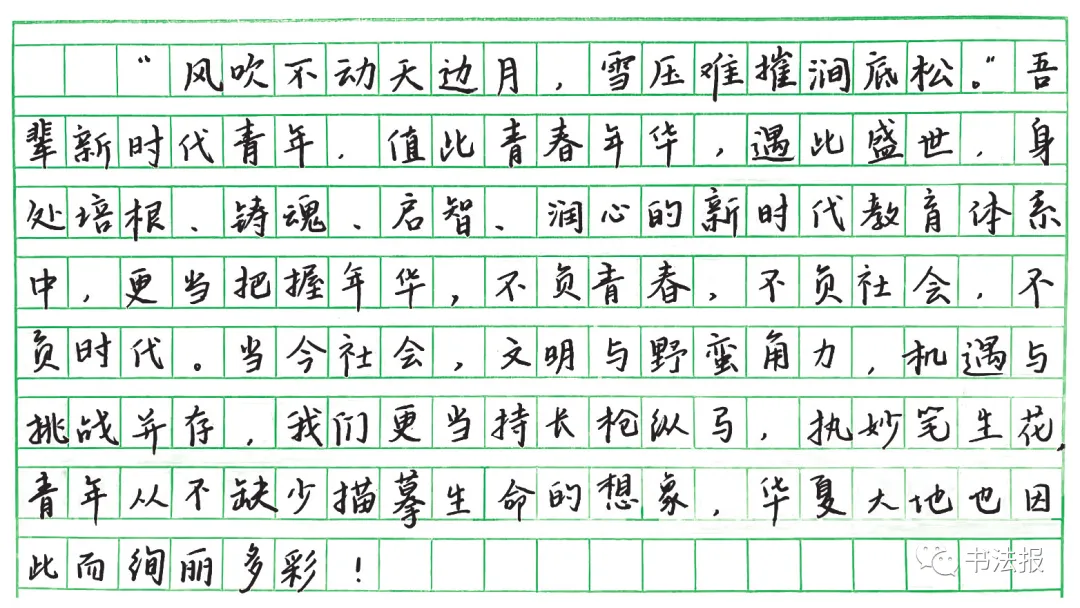 “风吹不动天边月，雪压难摧涧底松。”吾
辈新时代青年，值此青春年华，遇此盛世，身
处培根、铸魂、启智、润心的新时代教育体系
中，更当把握年华，不负青春，不负社会，不
负时代。当今社会，文明与野蛮角力，机遇与
挑战并存，我们更当持长枪纵马，执妙笔生花，
青年从不缺少描摹生命的想象，华夏大地也因
此而绚丽多彩！
书法报